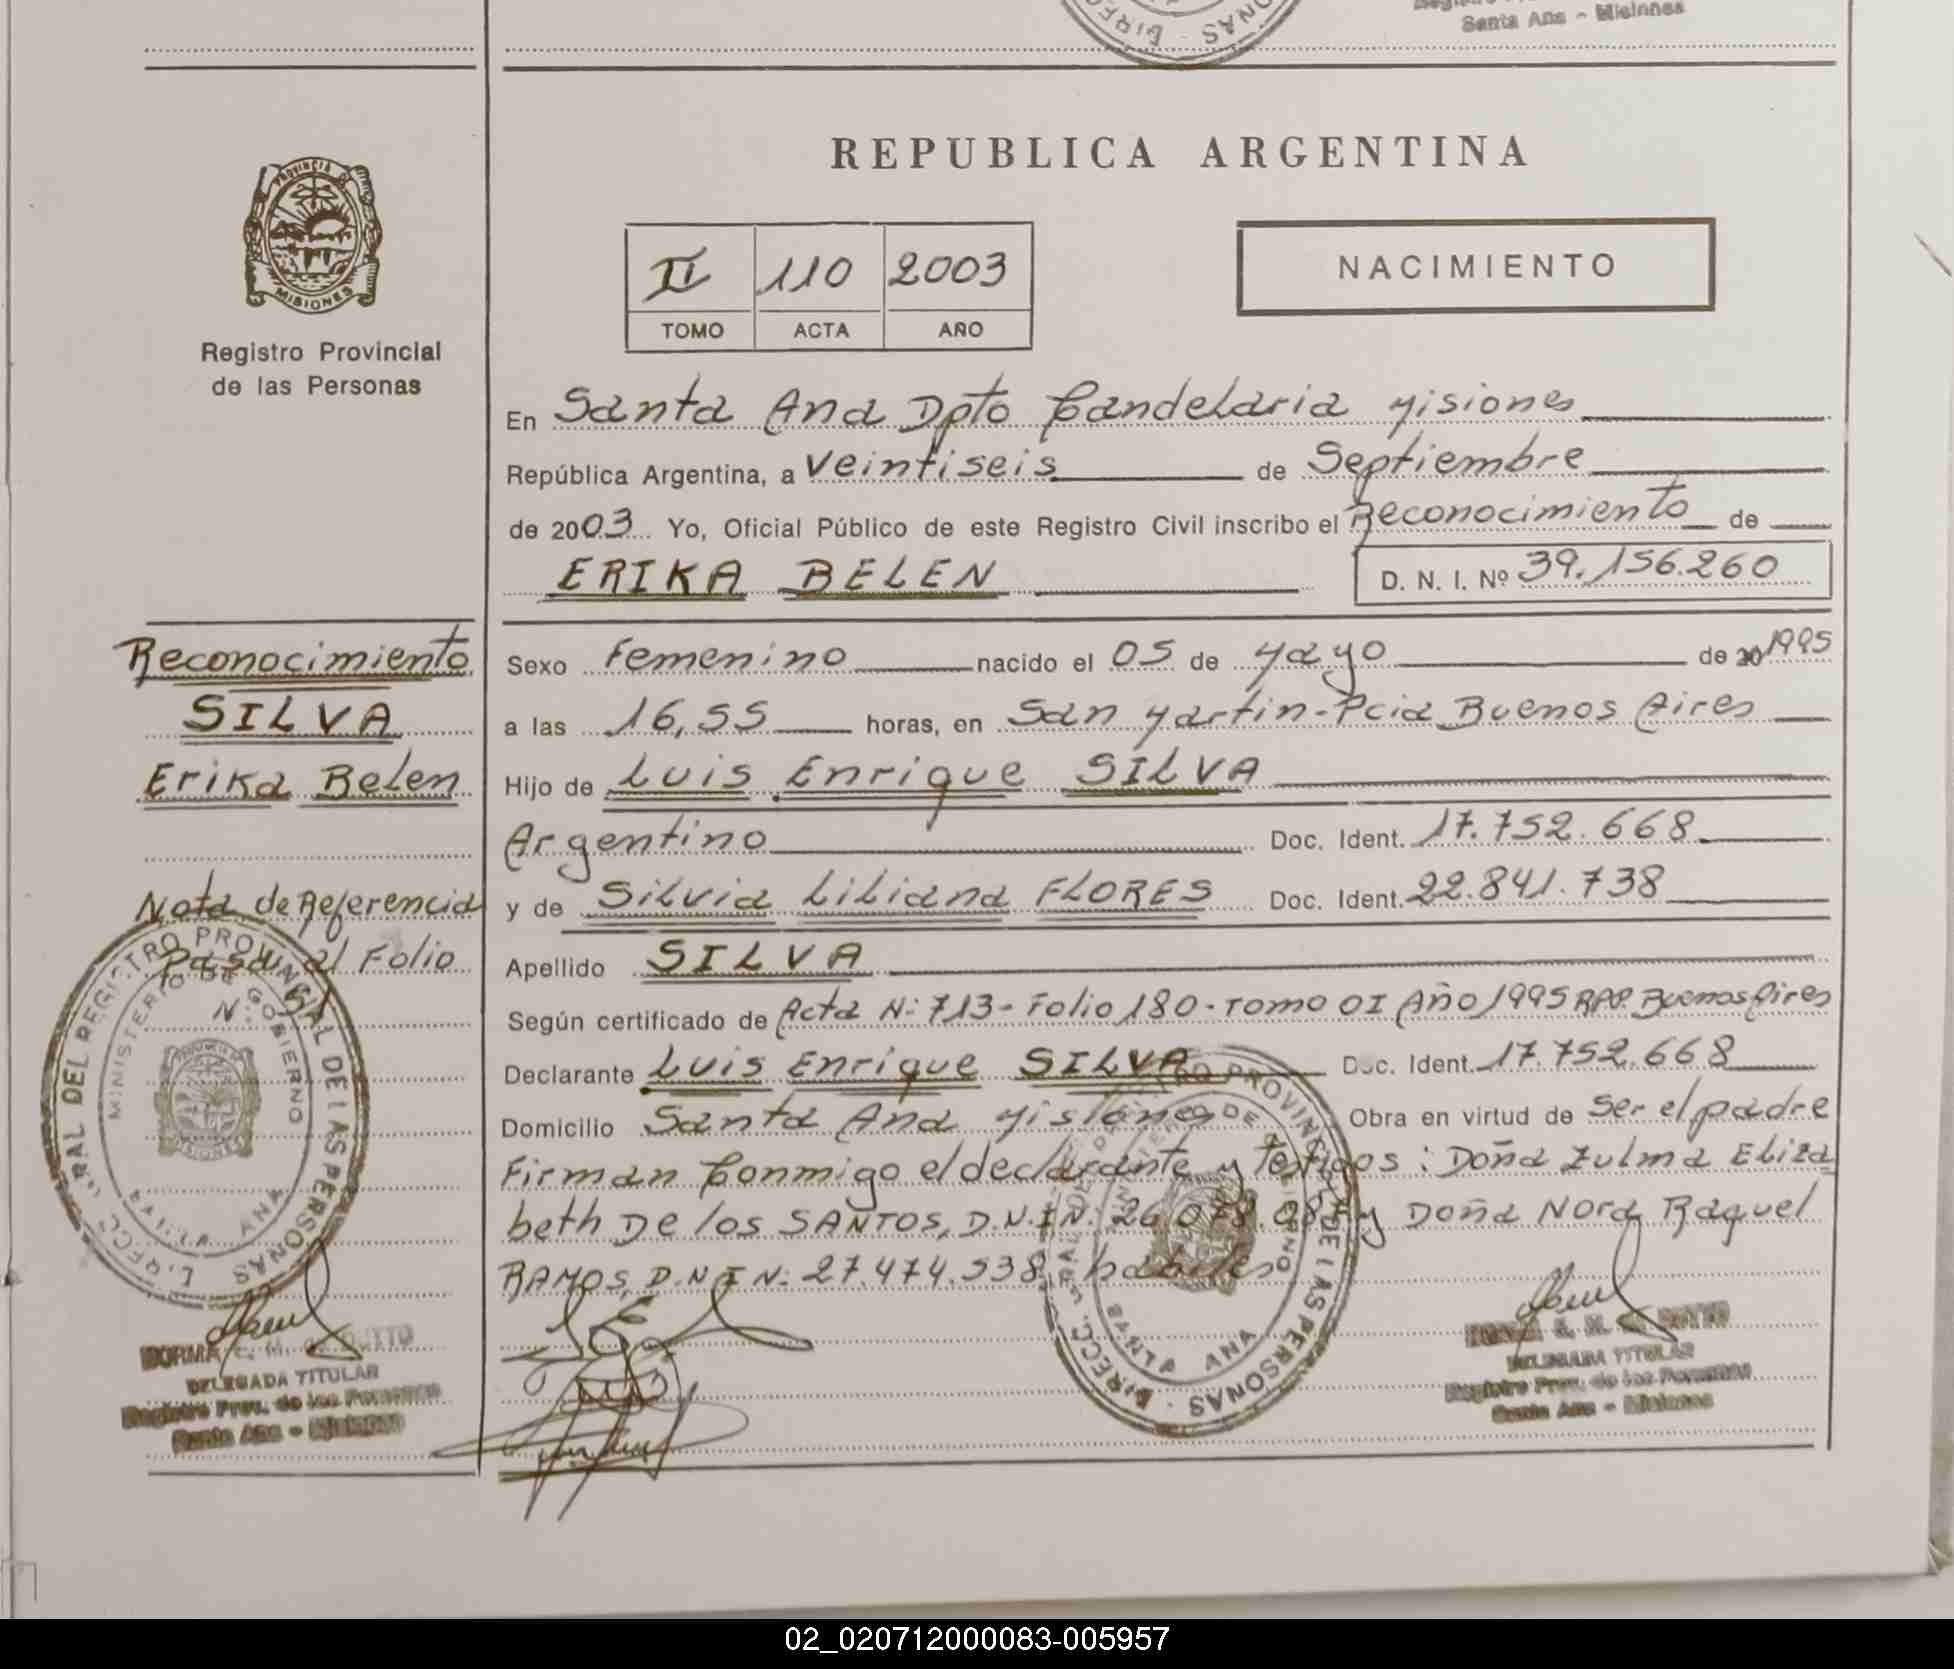 Santa Ana - Misiones
REPUBLICA ARGENTINA
PROVINCIA DE
MISIONES
Registro Provincial
de las Personas
II 110 2003
TOMO ACTA AÑO
NACIMIENTO
En Santa Ana Dpto Candelaria Misiones
República Argentina, a Veintiseis de Septiembre
de 2003 Yo, Oficial Público de este Registro Civil inscribo el Reconocimiento de
ERIKA BELEN D. N. I. Nº 39.156.260
Reconocimiento
SILVA
Erika Belen
Nota de Referencia
Pasa al Folio
Sexo Femenino nacido el 05 de Mayo de 20 1995
a las 16,55 horas, en San Martin - Pcia Buenos Aires
Hijo de Luis Enrique SILVA
Argentino Doc. Ident. 17.752.668
y de Silvia Liliana FLORES Doc. Ident. 22.841.738
Apellido SILVA
Según certificado de Acta N: 713 - Folio 180 - Tomo 01 Año 1995 RPP. Buenos Aires
Declarante Luis Enrique SILVA Doc. Ident. 17.752.668
Domicilio Santa Ana Misiones Obra en virtud de Ser el padre
Firman Conmigo el declarante y Testigos: Doña Zulma Eliza
beth De los SANTOS, D.N.I N: y Doña Nora Raquel
RAMOS, D.N.I N: 27.474.538, habiles
DIRECC. GRAL DEL REGISTRO PROVINCIAL DE LAS PERSONAS
MINISTERIO DE GOBIERNO
SANTA ANA
DIRECC. GRAL DEL REGISTRO PROVINCIAL DE LAS PERSONAS
MINISTERIO DE GOBIERNO
SANTA ANA
NORMA
DELEGADA TITULAR
Registro Prov. de las Personas
Santa Ana - Misiones
DELEGADA TITULAR
Registro Prov. de las Personas
Santa Ana - Misiones
02_020712000083-005957